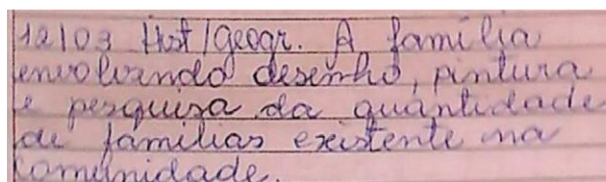 12/03 Hist/geogr. A família
envolvendo desenho, pintura
e pesquisa da quantidade
de famílias existente na
comunidade.